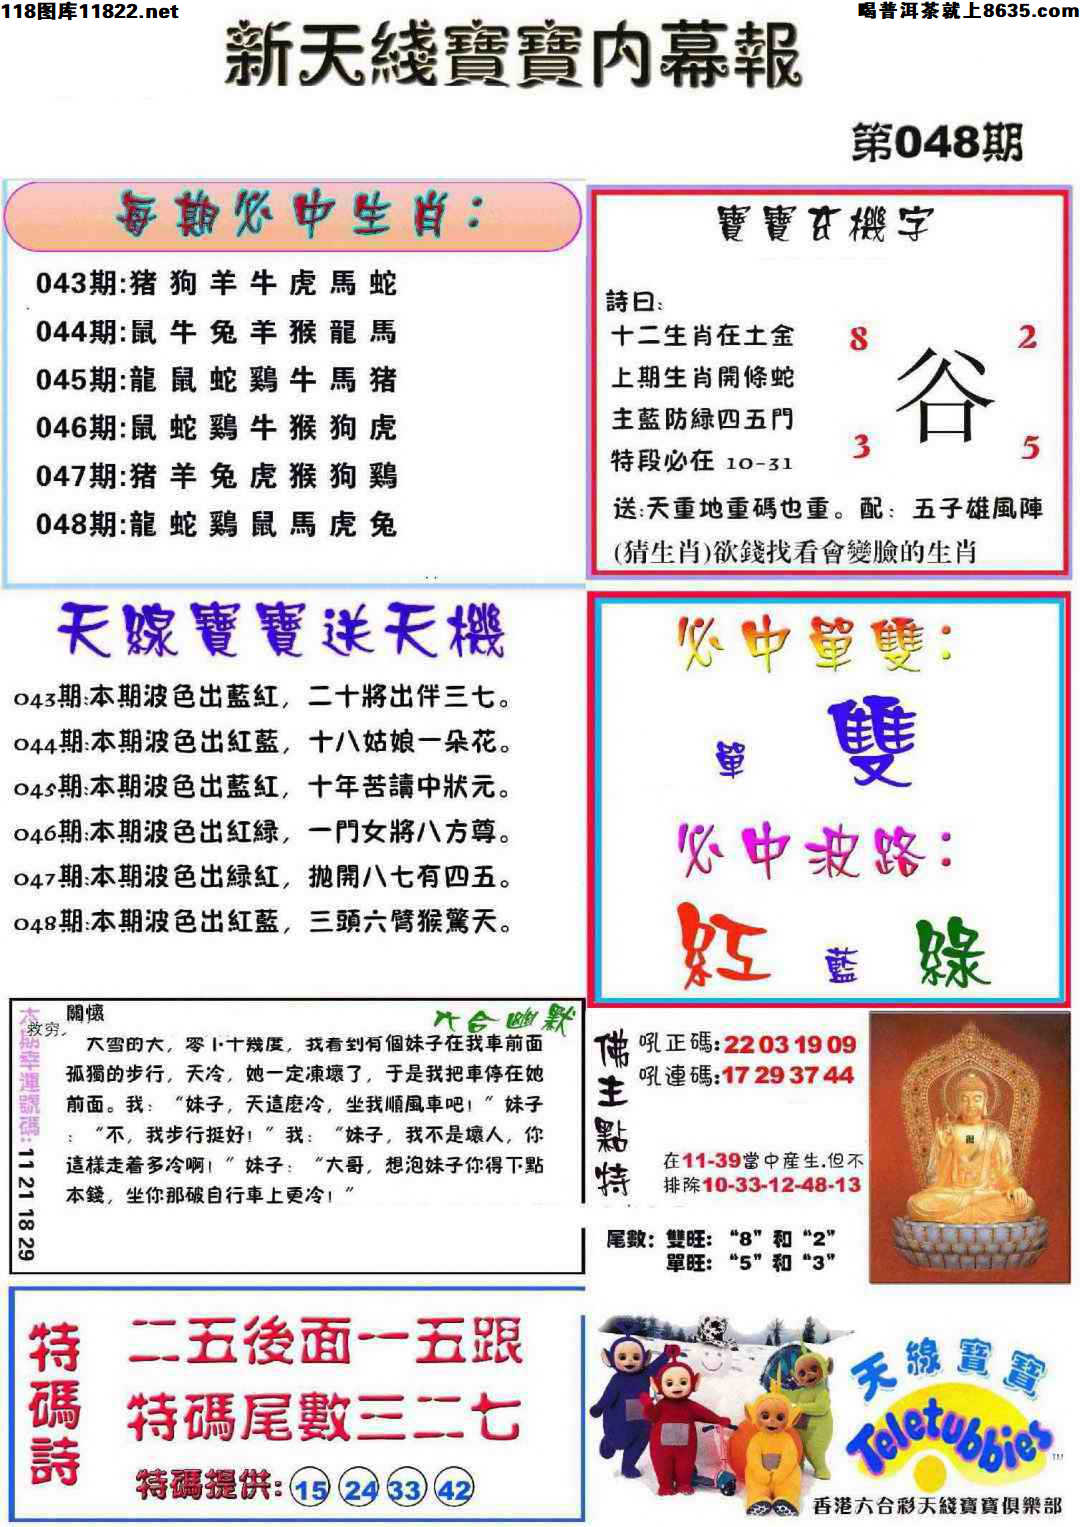 118图库11822.net
喝普洱茶就上8635.com
新天綫寶寶内幕報
第048期
每期必中生肖：
043期:猪狗羊牛虎馬蛇
044期:鼠牛兔羊猴龍馬
045期:龍鼠蛇鷄牛馬猪
046期:鼠蛇鷄牛猴狗虎
047期:猪羊兔虎猴狗鷄
048期:龍蛇鷄鼠馬虎兔
寶寶玄機字
詩曰:
十二生肖在土金
上期生肖開條蛇
主藍防緑四五門
特段必在 10-31
8
2
谷
3
5
送:天重地重碼也重。配：五子雄風陣
(猜生肖)欲錢找看會變臉的生肖
天線寶寶送天機
043期:本期波色出藍紅，二十將出伴三七。
044期:本期波色出紅藍，十八姑娘一朵花。
045期:本期波色出藍紅，十年苦讀中狀元。
046期:本期波色出紅緑，一門女將八方尊。
047期:本期波色出緑紅，抛開八七有四五。
048期:本期波色出紅藍，三頭六臂猴驚天。
必中單雙：
單 雙
必中波路：
紅 藍 緑
本期幸運號碼:11 21 18 29
關懷
救穷.
六合幽默
大雪的天，零下十幾度，我看到有個妹子在我車前面
孤獨的步行，天冷，她一定凍壞了，于是我把車停在她
前面。我：“妹子，天這麽冷，坐我順風車吧！”妹子
：“不，我步行挺好！”我：“妹子，我不是壞人，你
這樣走着多冷啊！”妹子：“大哥，想泡妹子你得下點
本錢，坐你那破自行車上更冷！”
佛主點特
吼正碼:22 03 19 09
吼連碼:17 29 37 44
在11-39當中産生.但不
排除10-33-12-48-13
尾數：雙旺：“8”和“2”
單旺：“5”和“3”
特碼詩
二五後面一五跟
特碼尾數三二七
特碼提供: 15 24 33 42
天線寶寶
Teletubbies
TM
香港六合彩天綫寶寶俱樂部